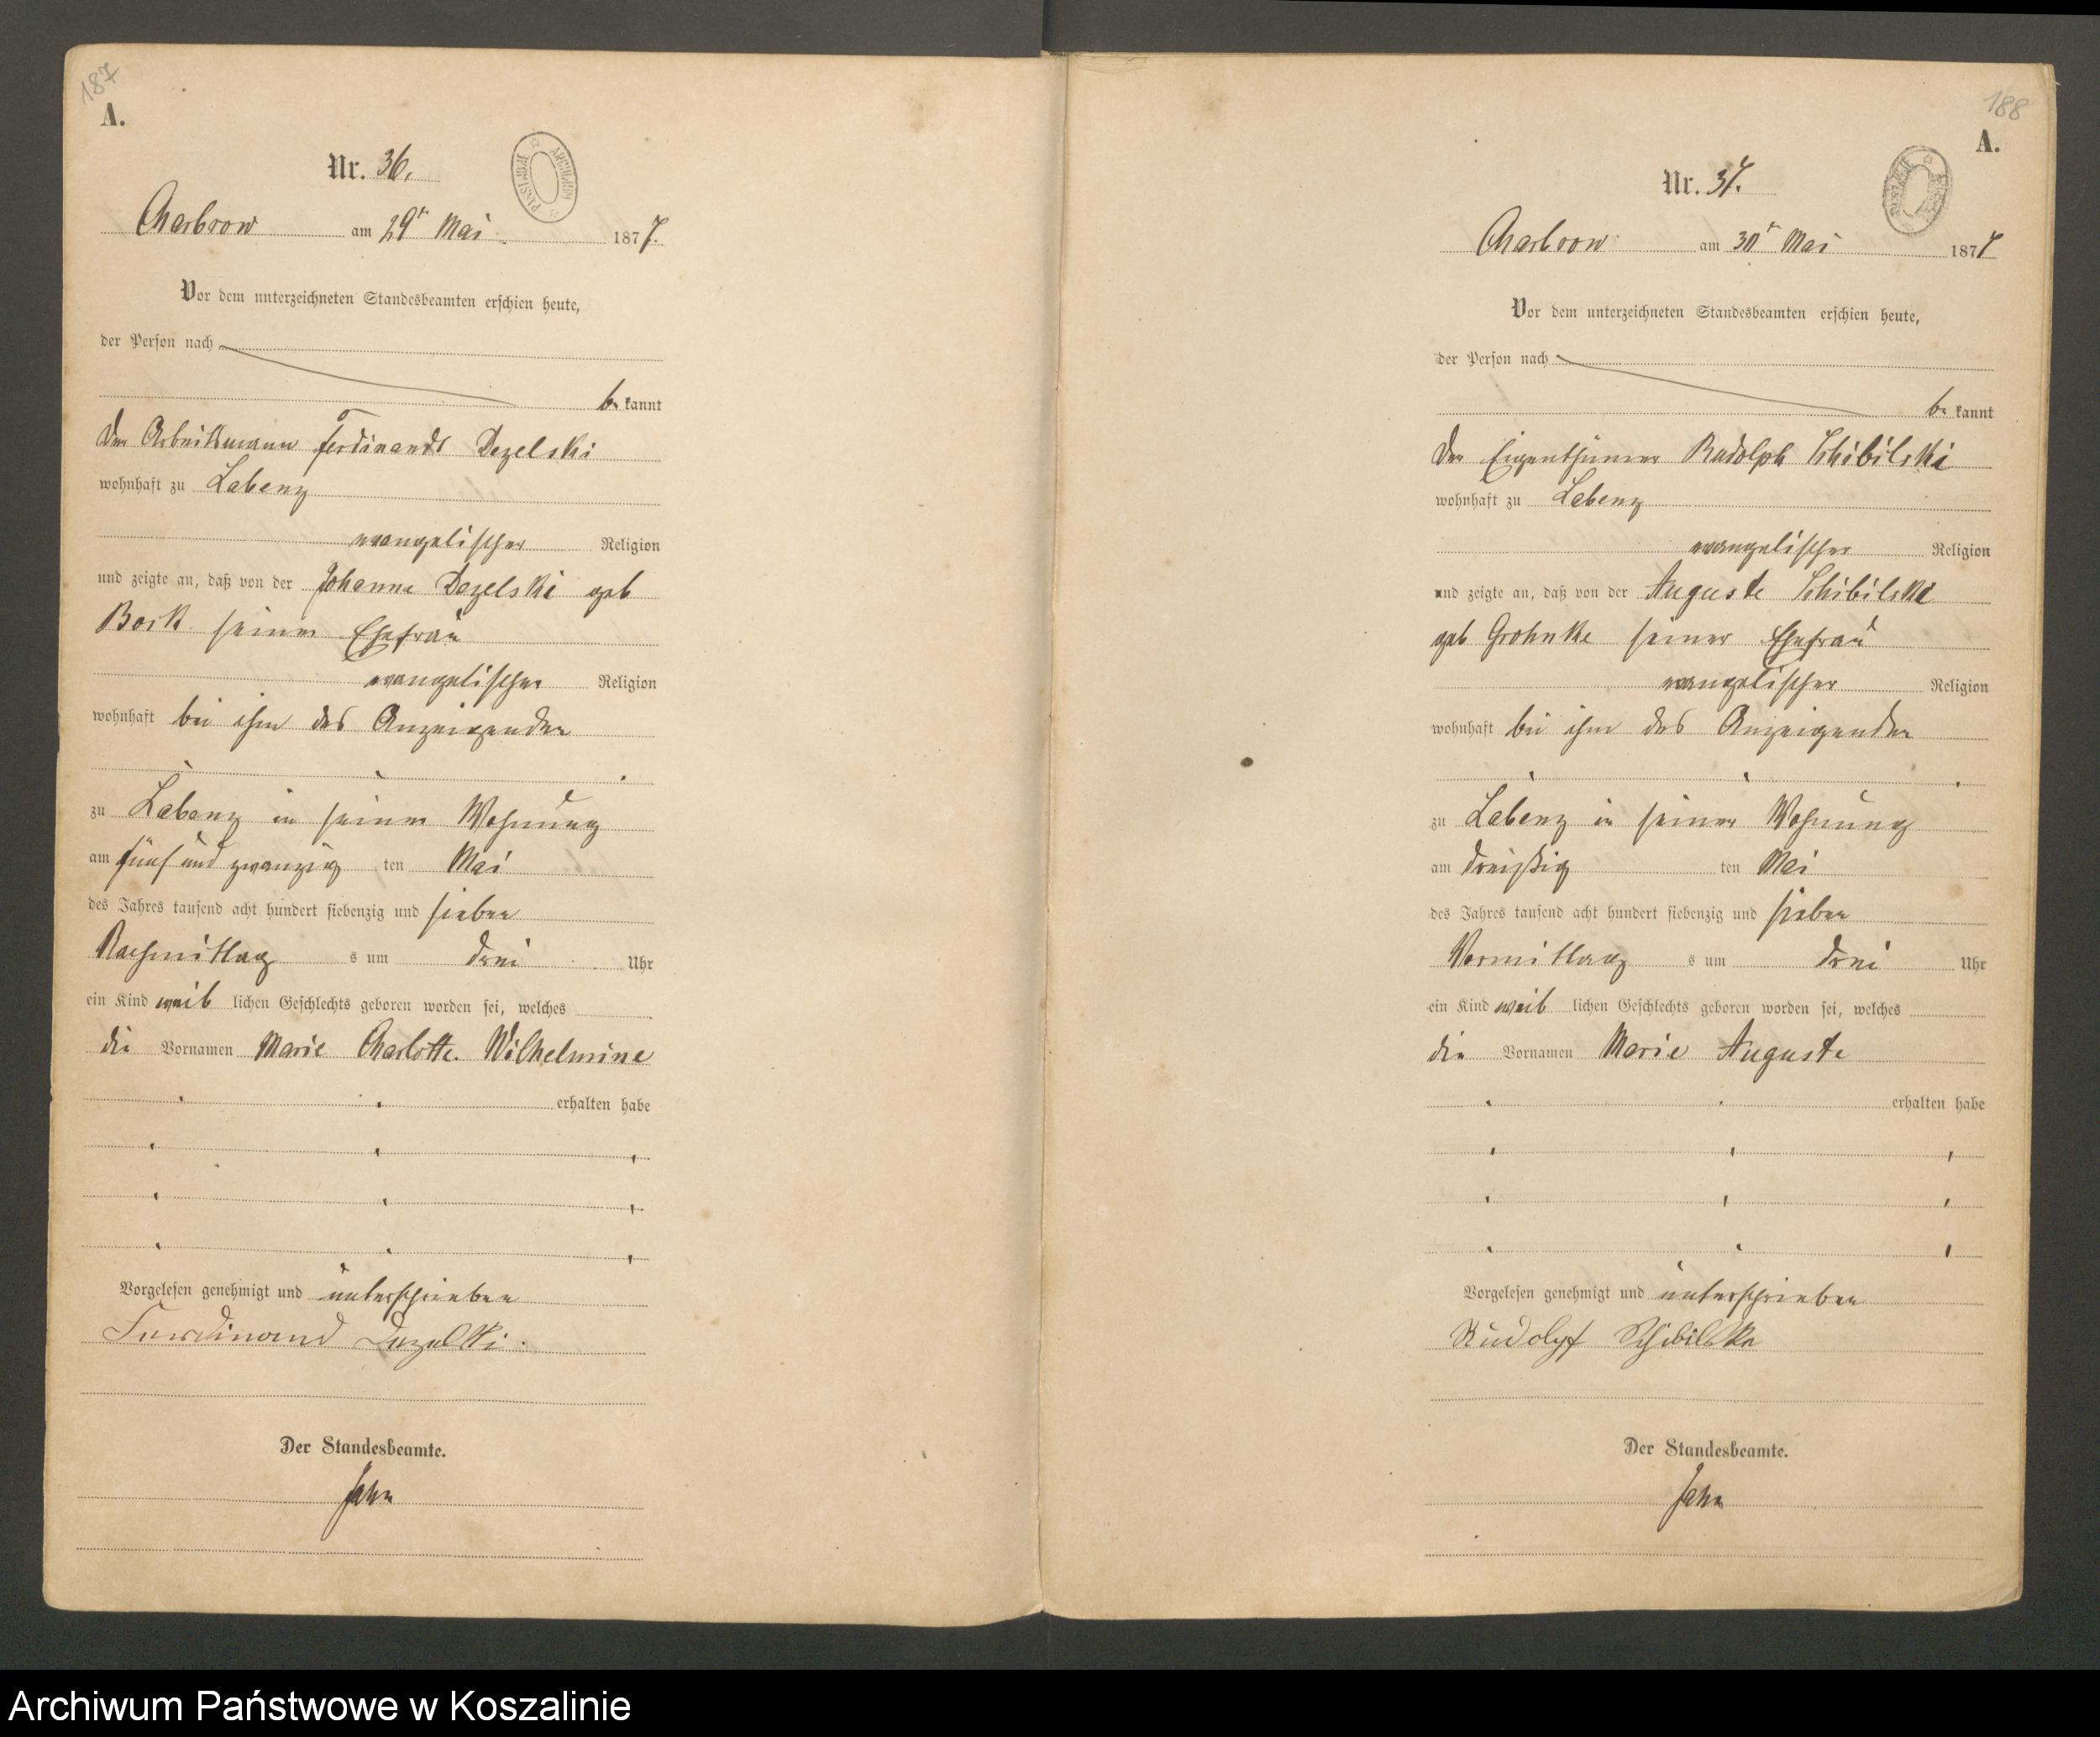 187
A.
Nr. 36.
Charbrow am 29t Mai 1877.
Vor dem unterzeichneten Standesbeamten erschien heute,
der Person nach
be kannt
Der Arbeitsmann Ferdinandt Dezelski
wohnhaft zu Labenz
evangelischer Religion
und zeigte an, daß von der Johanne Dezelski geb
Bork seiner Ehefrau
evangelischer Religion
wohnhaft bei ihm des Anzeigenden
zu Labenz in seiner Wohnung
am fünf und zwanzig ten Mai
des Jahres tausend acht hundert siebenzig und sieben
Nachmittag s um drei Uhr
ein Kind weib lichen Geschlechts geboren worden sei, welches
die Vornamen Marie Charlotte Wilhelmine
erhalten habe
Vorgelesen genehmigt und unterschrieben
Ferdinand Dezelski
Der Standesbeamte.
Jahn
188
A.
Nr. 37.
Charbrow am 30t Mai 1877
Vor dem unterzeichneten Standesbeamten erschien heute,
der Person nach
be kannt
Der Eigenthümer Rudolph Schibilski
wohnhaft zu Labenz
evangelischer Religion
und zeigte an, daß von der Auguste Schibilski
geb Grohnke seiner Ehefrau
evangelischer Religion
wohnhaft bei ihm des Anzeigenden
zu Labenz in seiner Wohnung
am dreißig ten Mai
des Jahres tausend acht hundert siebenzig und sieben
Vormittag s um drei Uhr
ein Kind weib lichen Geschlechts geboren worden sei, welches
die Vornamen Marie Auguste
erhalten habe
Vorgelesen genehmigt und unterschrieben
Rudolpf Schibilske
Der Standesbeamte.
Jahn
Archiwum Państwowe w Koszalinie